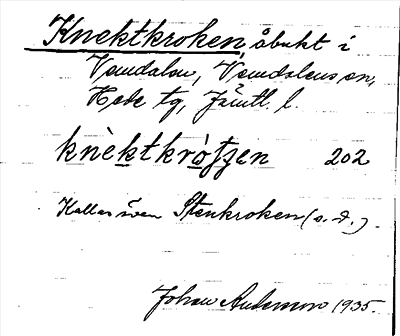 Knektkroken, åbukt i
Vemdalen, Vemdalens sn,
Hede tg, Jämtl. l.
knèktkròtʃen 202
Kallas även Stenkroken (s. d.).
Johan Anderson 1935.